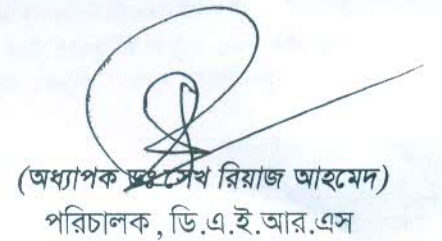 (অধ্যাপক ডঃ সেখ রিয়াজ আহমেদ)
পরিচালক, ডি.এ.ই.আর.এস